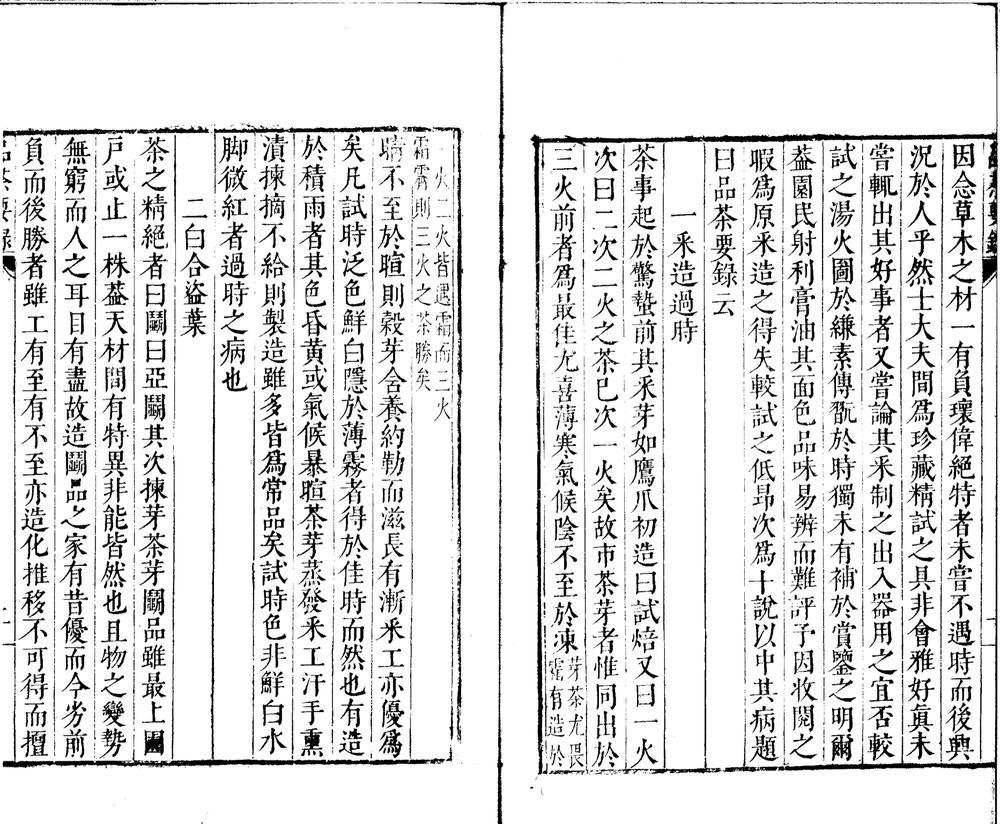 因念草木之材一有負瓌偉絕特者未嘗不遇時而後興
況於人乎然士大夫間爲珍藏精試之具非會雅好眞未
嘗輒出其好事者又嘗論其采制之出入器用之宜否較
試之湯火圖於縑素傳翫於時獨未有補於賞鑒之明爾
葢園民射利膏油其面色品味易辨而難評予因收閱之
暇爲原采造之得失較試之低昻次爲十說以中其病題
曰品茶要錄云
一采造過時
茶事起於驚蟄前其采芽如鷹爪初造曰試焙又曰一火
次曰二次二火之茶已次一火矣故市茶芽者惟同出於
三火前者爲最佳尤喜薄寒氣候陰不至於凍芽茶尤畏霜有造於
一火二火皆遇霜而三火霜霽則三火之茶勝矣
晴不至於暄則穀芽含養約勒而滋長有漸采工亦優爲
矣凡試時泛色鮮白隱於薄霧者得於佳時而然也有造
於積雨者其色昏黃或氣候暴暄茶芽蒸發采工汗手熏
漬揀摘不給則製造雖多皆爲常品矣試時色非鮮白水
脚微紅者過時之病也
二白合盜葉
茶之精絕者曰鬭曰亞鬭其次揀芽茶芽鬭品雖最上園
戸或止一株葢天材間有特異非能皆然也且物之變勢
無窮而人之耳目有盡故造鬭品之家有昔優而今劣前
負而後勝者雖工有至有不至亦造化推移不可得而擅
品茶要錄